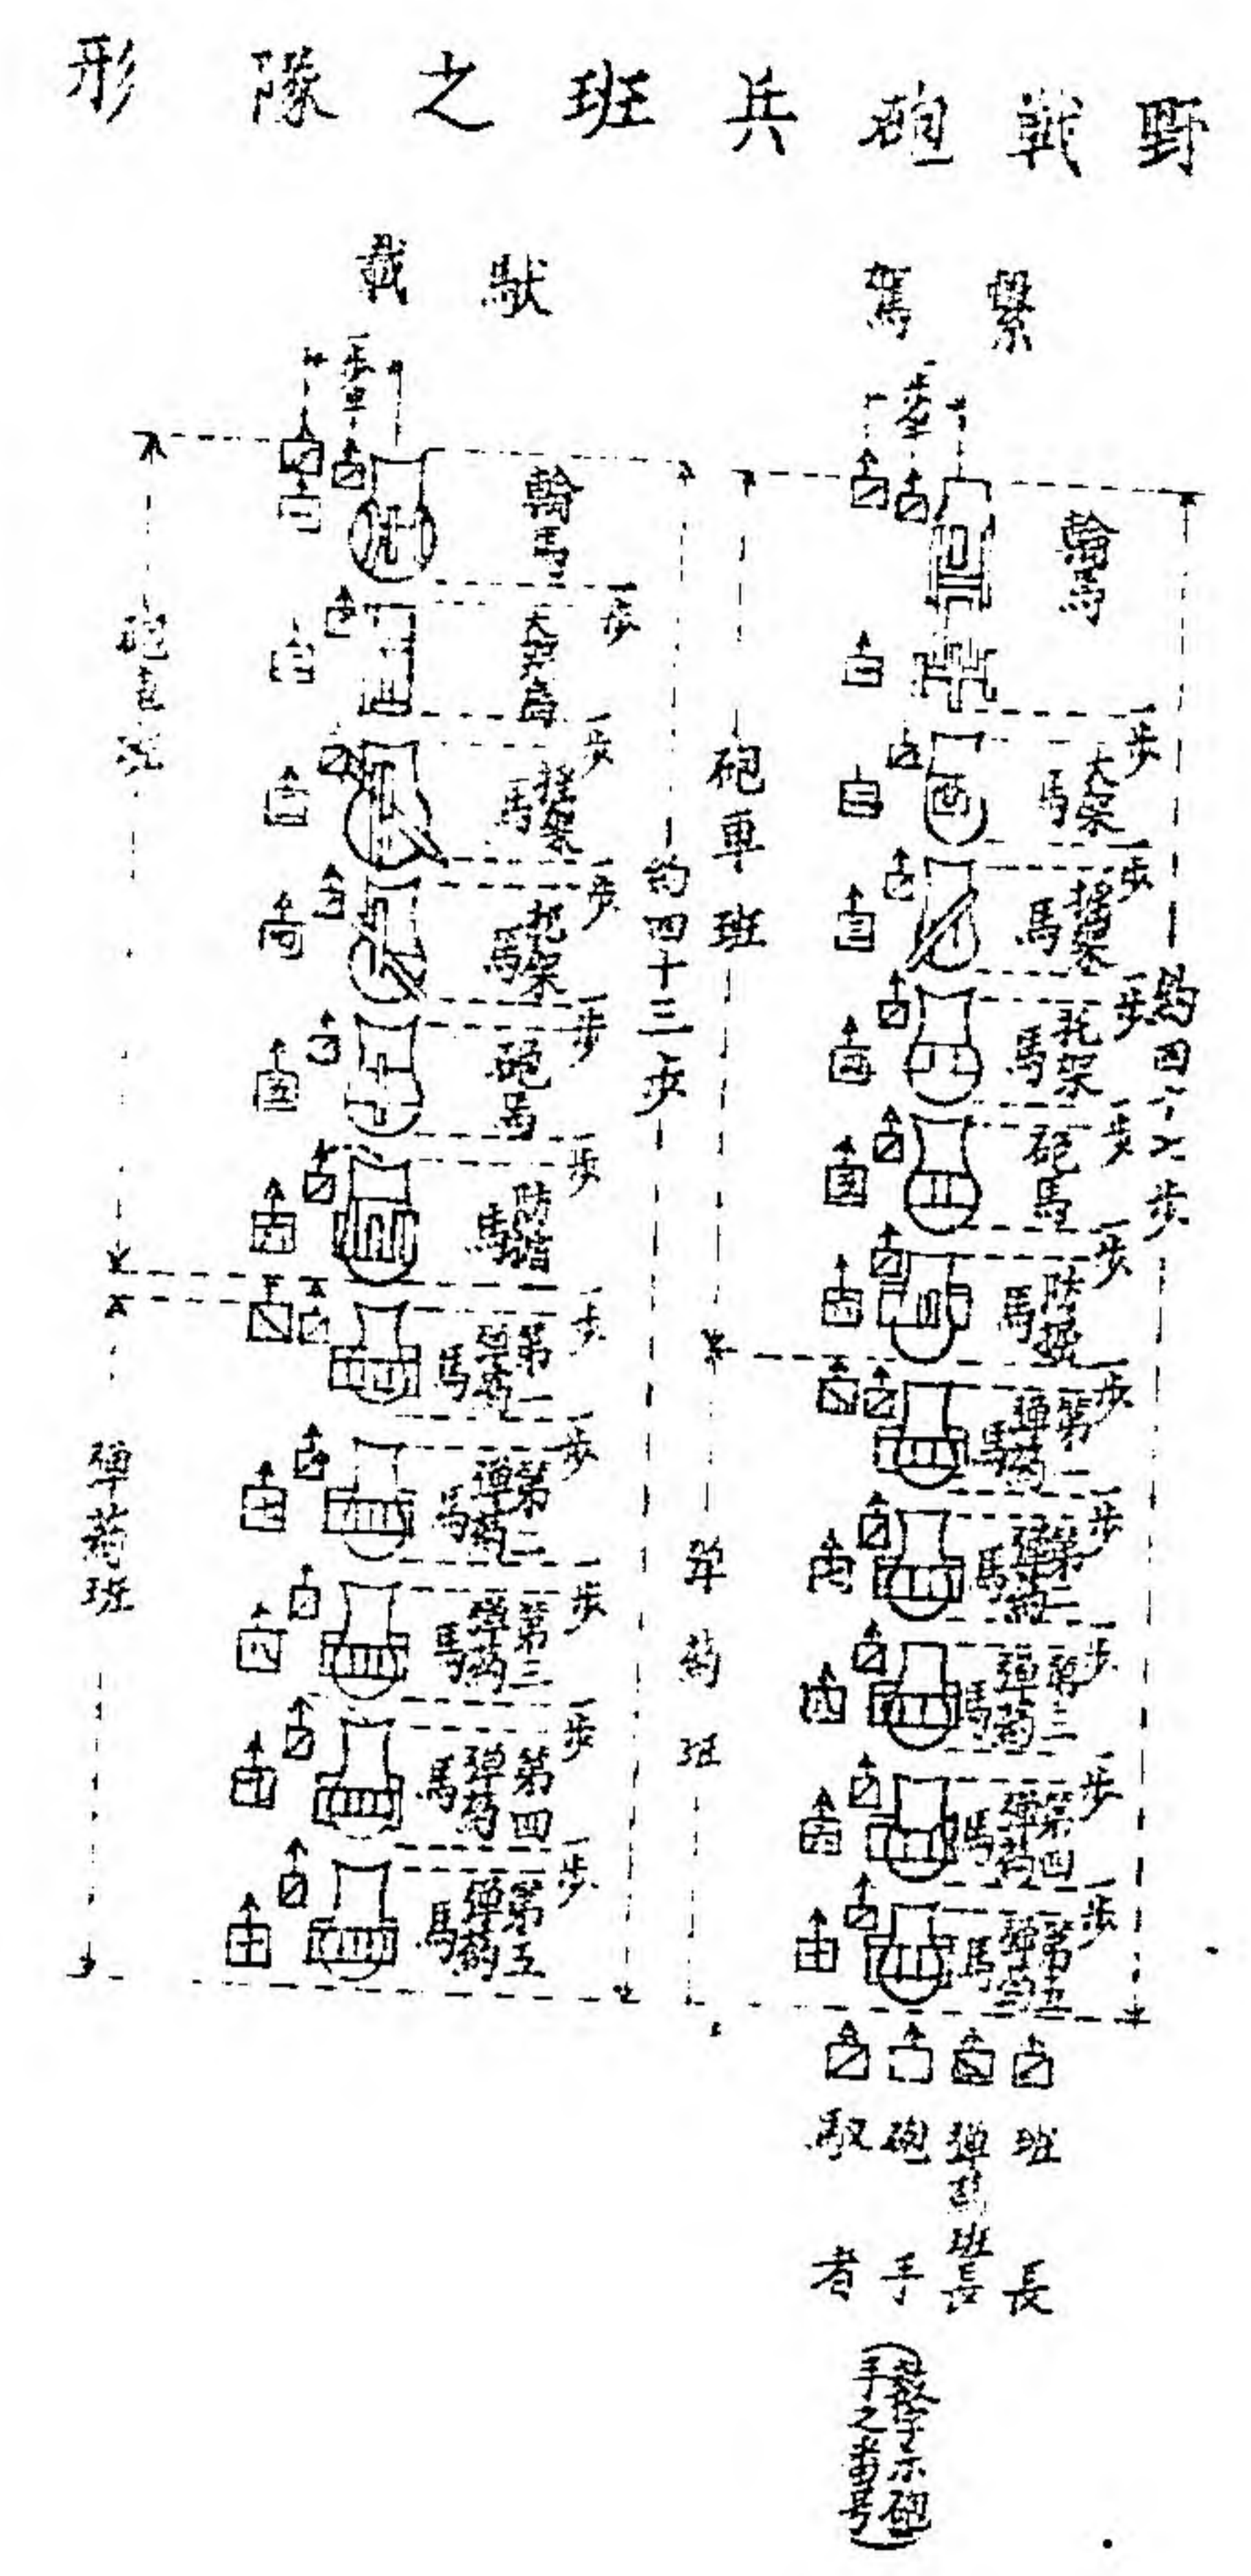 野戰砲兵班之隊形
繫駕
一步半
輪馬
一步
大架馬
一步
搖架馬
一步
托架馬
一步
砲馬
一步
防楯馬
一步
第一彈葯馬
一步
第二彈葯馬
一步
第三彈葯馬
一步
第四彈葯馬
一步
第五彈葯馬
約四十七步
砲車班
彈葯班
班長
彈葯班長
砲手
馭者
數字示砲手之番号
馱載
一步半
輪馬
一步
一步
搖架馬
一步
托架馬
一步
砲馬
一步
防楯馬
一步
第一彈葯馬
一步
第二彈葯馬
一步
第三彈葯馬
一步
第四彈葯馬
一步
第五彈葯馬
約四十三步
砲車班
彈葯班